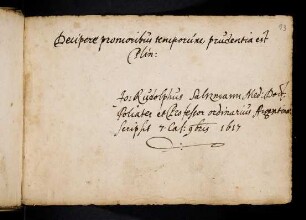 93
Decipere pro moribus temporum, prudentia est
Plin:
Jo: Rudolphus Saltzmann, Med. Doct.
Poliater et Professor ordinarius Argentinæ
scripsit 7 Cal: 9bris 1617